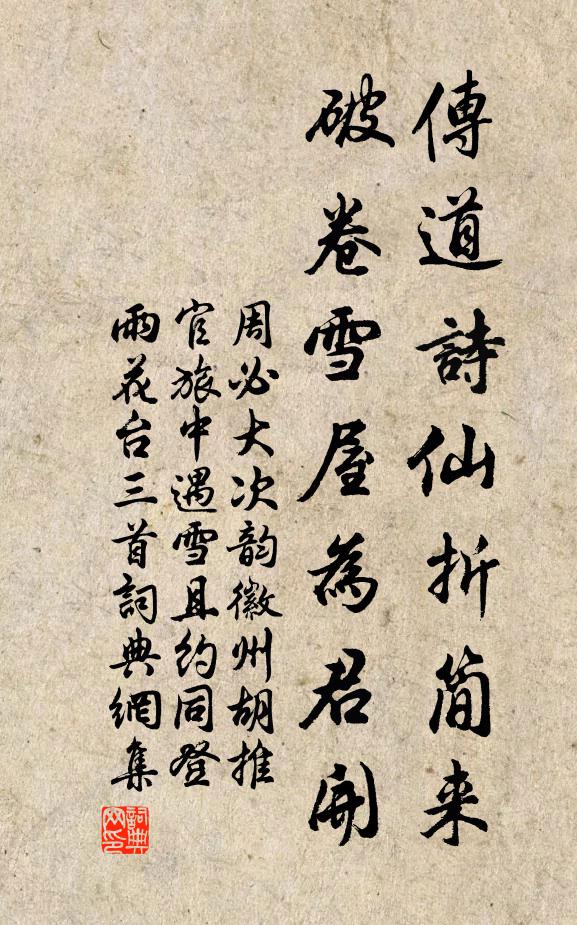 傳道詩仙折简来
破卷雪屋為君開
周必大次韵徽州胡推
官旅中遇雪且约同登
雨花台三首詞典網集
詞典
网印